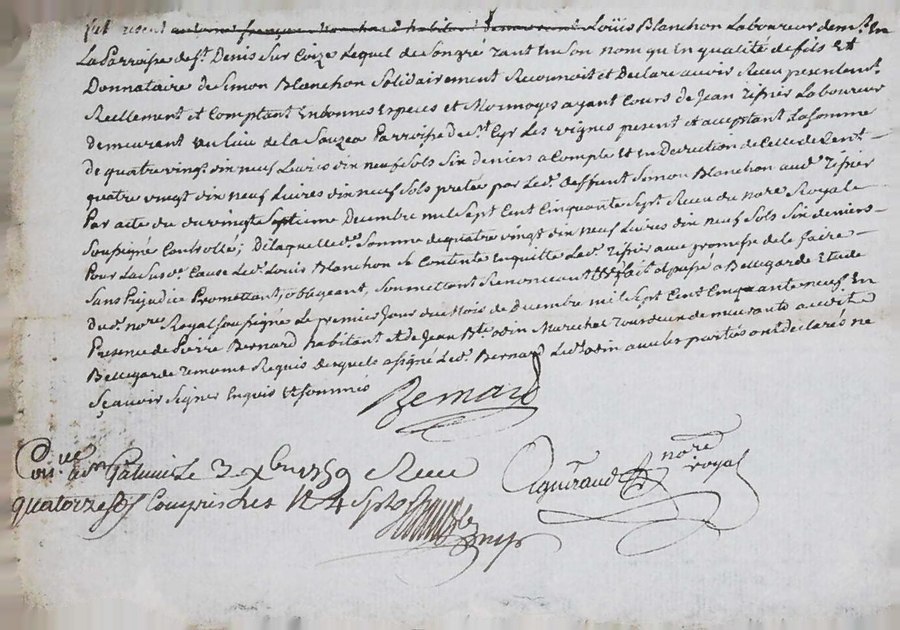 fut present Louïs Blanchon Laboureur demt. En
La Parroisse de st. Denis Sur Coize Lequel de Son gré tant En Son nom qu'En qualité de fils et
Donnataire de Simon Blanchon Solidairement Reconnoit et Declare avoir Receu presentemt.
Reellement et Comptant En bonnes Especes et Monnoyes ayant Cours de Jean Tissier Laboureur
demeurant au Lieu de la Sauzea Parroisse de st. Cyr Les vignes present et acceptant La Somme
de quatre vingt dix neuf Livres dix neuf Sols Six deniers a Compte Et En Deduction de Celle de Cent
quatre vingt dix neuf Livres dix neuf Sols pretée par Led. deffunt Simon Blanchon aud. Tissier
Par acte du vingt Septieme Decembre mil Sept Cent Cinquante Sept Receu du nore. Royale
Soussigné Controllé; De laquelle de. Somme de quatre vingt dix neuf Livres dix neuf Sols Six deniers
Pour La Susde. Cause Led. Louis Blanchon Se Contente En quitte Led. Tissier avec promesse de le faire
Sans Prejudice Promettant, obligeant, Soumettant Renonceant fait et passé a Bellegarde Etude
du nore. Royal Soussigné Le premier Jour du Mois de Decembre mil Sept Cent Cinquante neuf En
Presence de Pierre Bernard habitant Et de Jean Bte. odin Marechal demeurants aud.
Bellegarde Temoins Requis Lesquels a signé Led. Bernard Led. odin avec les parties ont declarés ne
Sçavoir Signer Enquis Et Sommés
Bernard
nore
royal
Conlle. a st. Galmier Le 3 xbre 1759 Receu
quatorze sols Compris les 4 s. pr